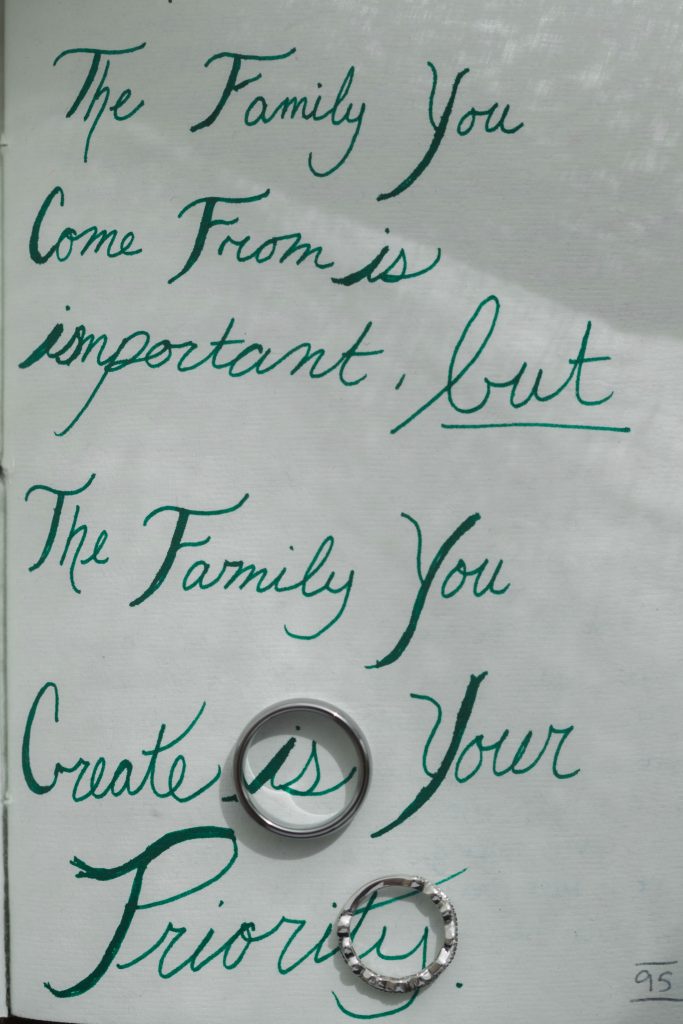 The Family You
Come From is
important, but
The Family You
Create is Your
Priority.
95